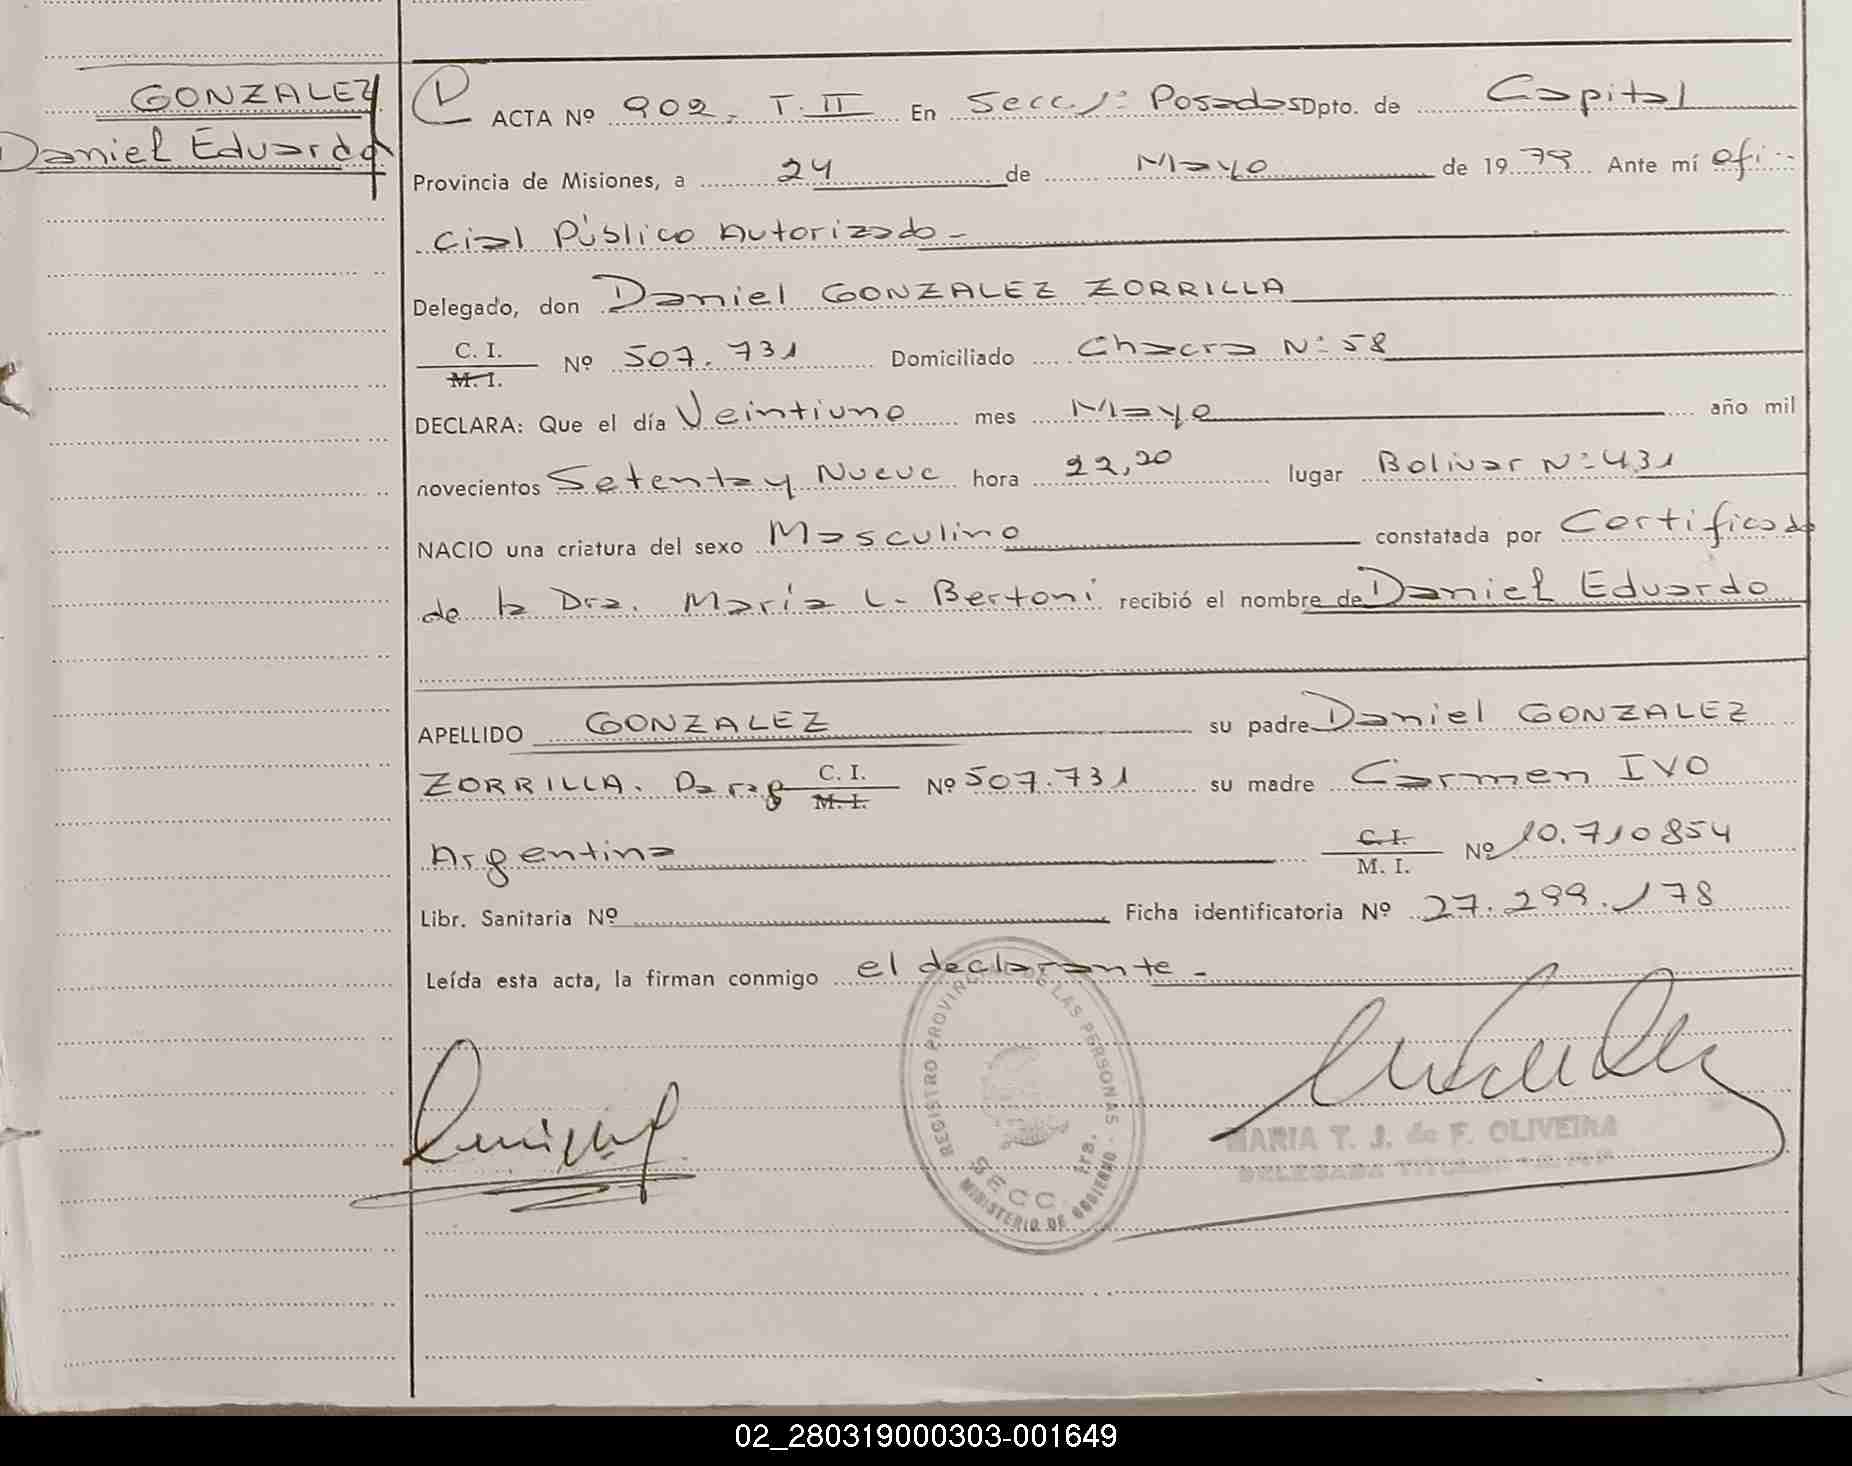 GONZALEZ
Daniel Eduardo
ACTA Nº 902. T. II En Secc. 1ª Posadas Dpto. de Capital
Provincia de Misiones, a 24 de Mayo de 1979 Ante mí ofi-
cial Público Autorizado-
Delegado, don Daniel GONZALEZ ZORRILLA
C. I.
M. I. Nº 507.731 Domiciliado Chacra Nº 58
DECLARA: Que el día Veintiuno mes Mayo año mil
novecientos Setenta y Nueve hora 22,20 lugar Bolivar Nº 431
NACIO una criatura del sexo Masculino constatada por Certificado
de la Dra. María L. Bertoni recibió el nombre de Daniel Eduardo
APELLIDO GONZALEZ su padre Daniel GONZALEZ
ZORRILLA. Parag C. I. M. I. Nº 507.731 su madre Carmen IVO
Argentina C. I. M. I. Nº 10.710854
Libr. Sanitaria Nº Ficha identificatoria Nº 27.299.178
Leída esta acta, la firman conmigo el declarante -
REGISTRO PROVINCIAL DE LAS PERSONAS - MINISTERIO DE GOBIERNO
SECC. 1ra.
MARIA T. J. de F. OLIVEIRA
DELEGADA TITULAR
02_280319000303-001649